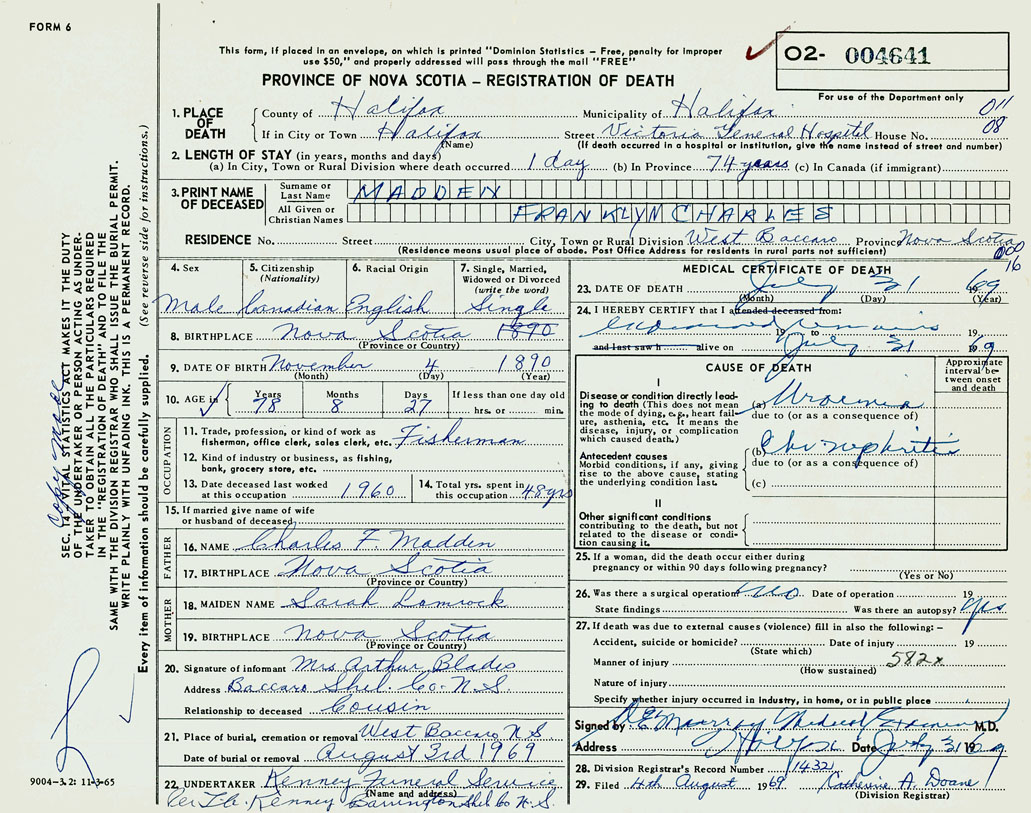 FORM 6
This form, if placed in an envelope, on which is printed "Dominion Statistics – Free, penalty for improper
use $50," and properly addressed will pass through the mail "FREE"
PROVINCE OF NOVA SCOTIA – REGISTRATION OF DEATH
O2- 004641
For use of the Department only
011
08
1. PLACE OF DEATH
County of Halifax Municipality of Halifax
If in City or Town Halifax Street Victoria General Hospital House No.
(Name) (If death occurred in a hospital or institution, give the name instead of street and number)
2. LENGTH OF STAY (in years, months and days)
(a) In City, Town or Rural Division where death occurred 1 day (b) In Province 74 years (c) In Canada (if immigrant)
3. PRINT NAME OF DECEASED
Surname or Last Name MADDEN
All Given or Christian Names FRANKLYN CHARLES
RESIDENCE No. Street City, Town or Rural Division West Baccaro Province Nova Scotia
(Residence means usual place of abode. Post Office Address for residents in rural parts not sufficient)
000
16
4. Sex Male
5. Citizenship (Nationality) Canadian
6. Racial Origin English
7. Single, Married, Widowed or Divorced (write the word) Single
8. BIRTHPLACE Nova Scotia 1890
(Province or Country)
9. DATE OF BIRTH November 4 1890
(Month) (Day) (Year)
10. AGE in Years 78 Months 8 Days 27 If less than one day old hrs. or min.
OCCUPATION
11. Trade, profession, or kind of work as fisherman, office clerk, sales clerk, etc. Fisherman
12. Kind of industry or business, as fishing, bank, grocery store, etc.
13. Date deceased last worked at this occupation 1960
14. Total yrs. spent in this occupation 48 yrs
15. If married give name of wife or husband of deceased
FATHER
16. NAME Charles F. Madden
17. BIRTHPLACE Nova Scotia
(Province or Country)
MOTHER
18. MAIDEN NAME Sarah
19. BIRTHPLACE Nova Scotia
(Province or Country)
20. Signature of informant Mrs Arthur Blades
Address Baccaro Shel. Co. N.S.
Relationship to deceased Cousin
21. Place of burial, cremation or removal West Baccaro N S
Date of burial or removal August 3rd 1969
22. UNDERTAKER Kenney Funeral Service
(Name and address)
Kenney Barrington Shel Co N.S.
MEDICAL CERTIFICATE OF DEATH
23. DATE OF DEATH July 31 1969
(Month) (Day) (Year)
24. I HEREBY CERTIFY that I attended deceased from:
19 to 19
and last saw h alive on July 31 1969
CAUSE OF DEATH
Approximate interval between onset and death
I
Disease or condition directly leading to death (This does not mean the mode of dying, e.g., heart failure, asthenia, etc. It means the disease, injury, or complication which caused death.)
(a) Uraemia
due to (or as a consequence of)
Antecedent causes
Morbid conditions, if any, giving rise to the above cause, stating the underlying condition last.
(b) Chr nephritis
due to (or as a consequence of)
(c)
II
Other significant conditions contributing to the death, but not related to the disease or condition causing it.
25. If a woman, did the death occur either during pregnancy or within 90 days following pregnancy?
(Yes or No)
26. Was there a surgical operation No Date of operation 19
State findings Was there an autopsy? Yes
27. If death was due to external causes (violence) fill in also the following: –
Accident, suicide or homicide? Date of injury 19
(State which)
Manner of injury 582x
(How sustained)
Nature of injury
Specify whether injury occurred in industry, in home, or in public place
Signed by Medical Examiner M.D.
Address Halifax Date July 31 1969
28. Division Registrar's Record Number 14321
29. Filed 4th August 1969 Catherine A. Doane
(Division Registrar)
copy made
SEC. 14 – VITAL STATISTICS ACT MAKES IT THE DUTY
OF THE UNDERTAKER OR PERSON ACTING AS UNDER-
TAKER TO OBTAIN ALL THE PARTICULARS REQUIRED
IN THE "REGISTRATION OF DEATH" AND TO FILE THE
SAME WITH THE DIVISION REGISTRAR WHO SHALL ISSUE THE BURIAL PERMIT.
WRITE PLAINLY WITH UNFADING INK. THIS IS A PERMANENT RECORD.
Every item of information should be carefully supplied. (See reverse side for instructions.)
9004-3.2: 11-3-65